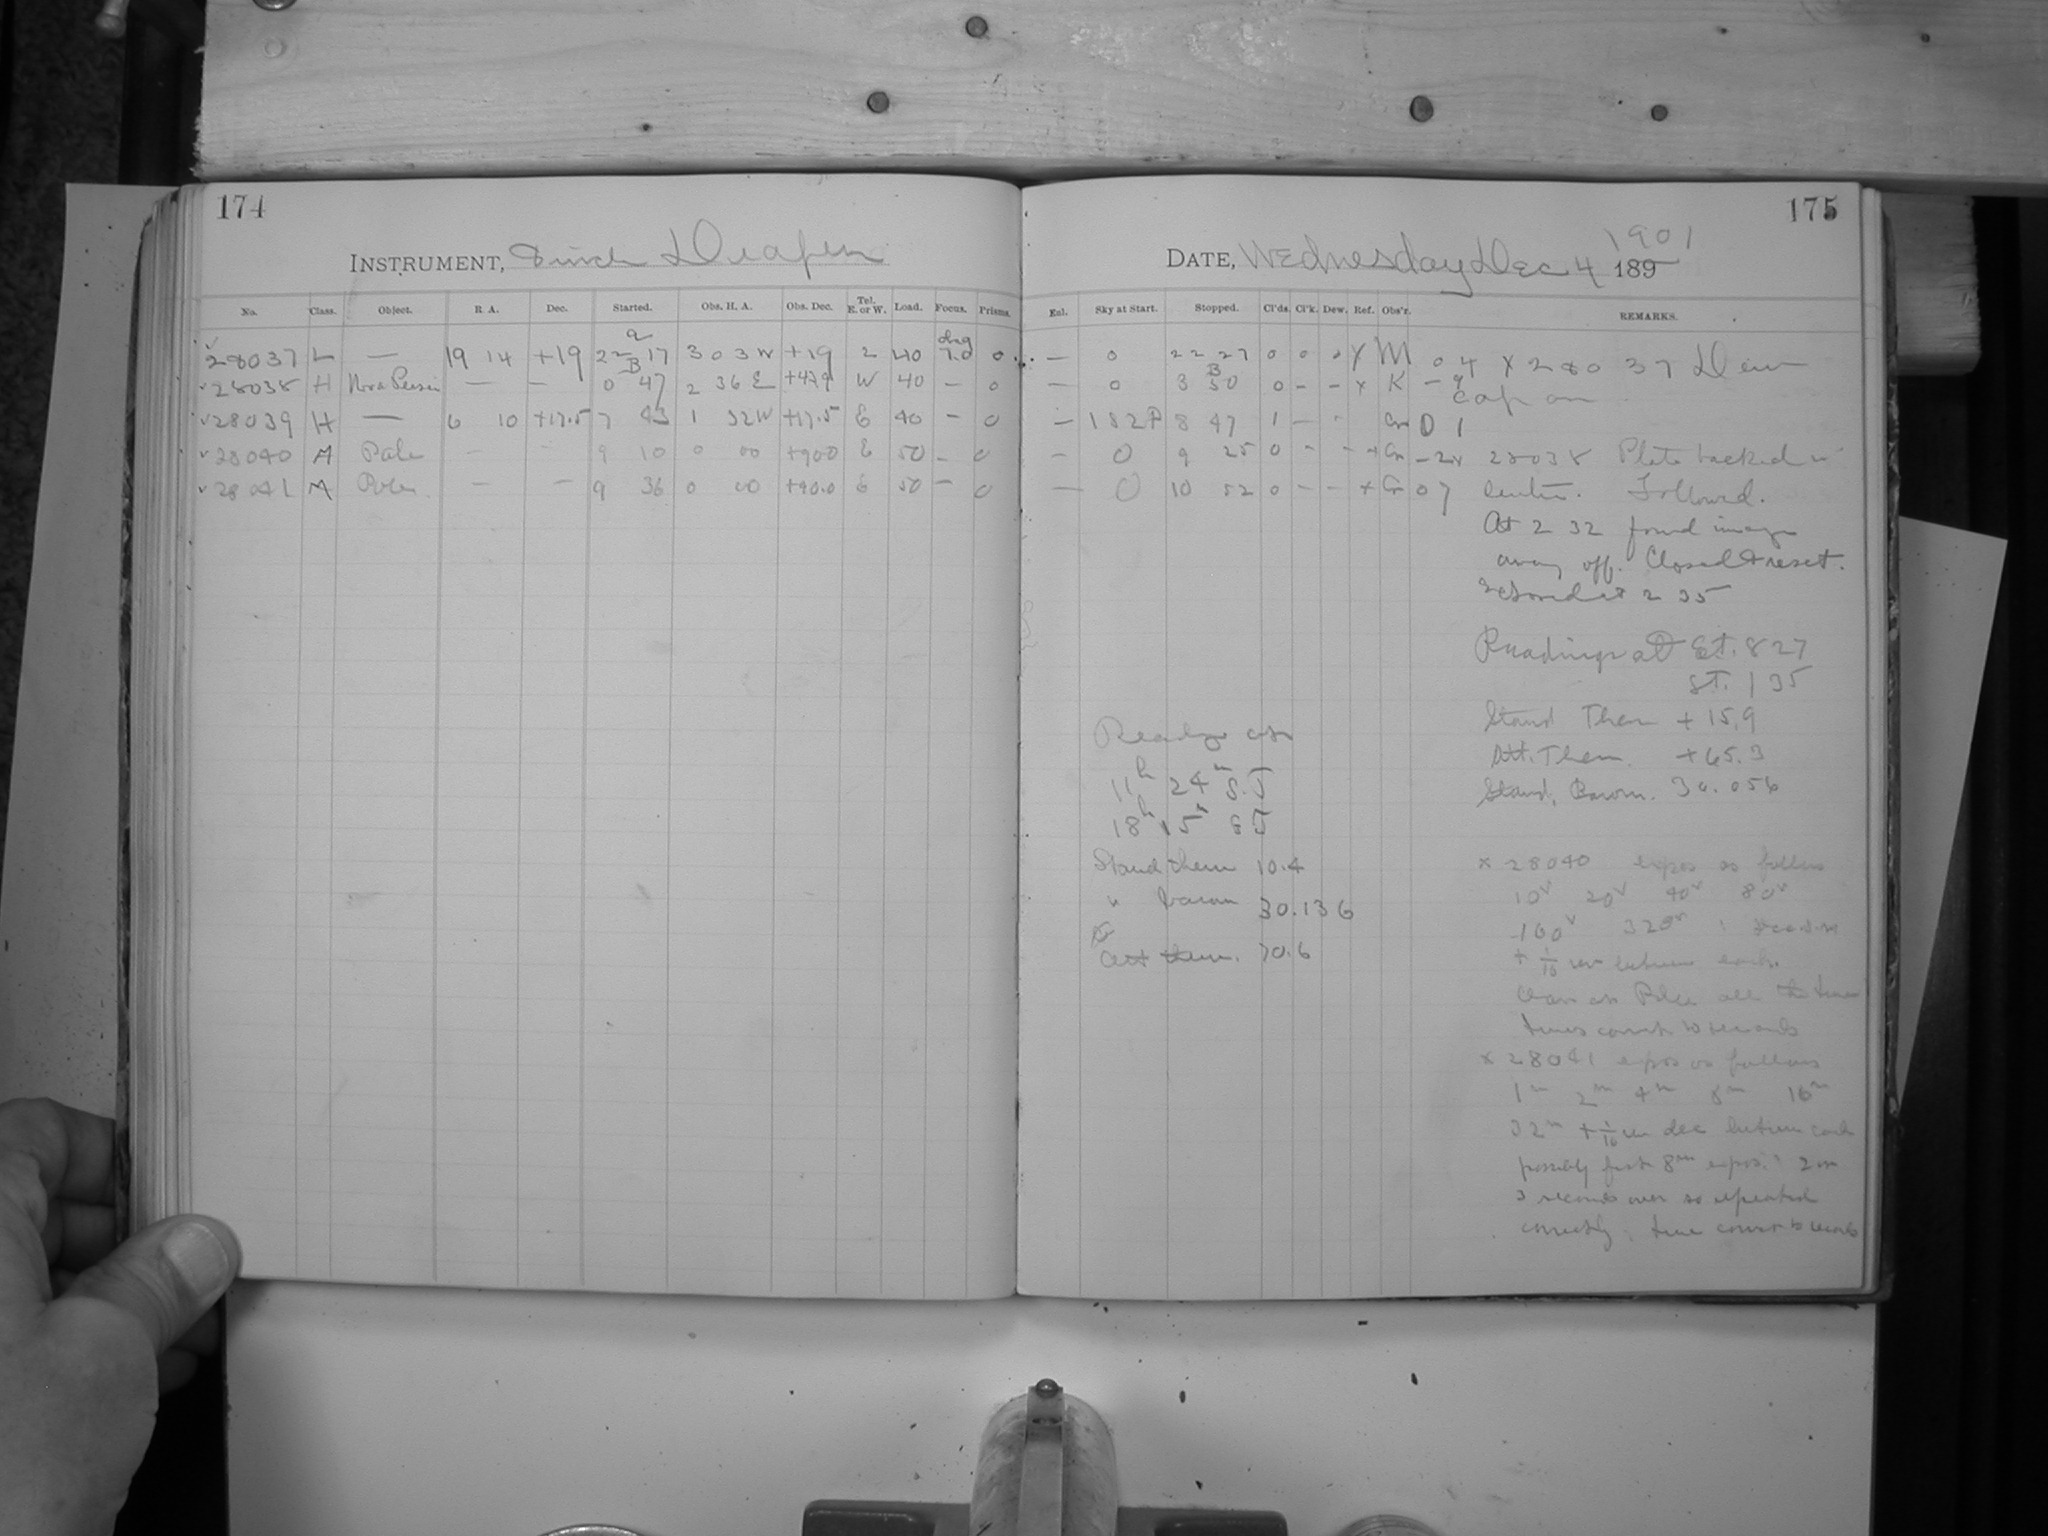 174
INSTRUMENT, 8 inch Draper
No. Class. Object. R. A. Dec. Started. Obs. H. A. Obs. Dec. Tel. E. or W. Load. Focus. Prisms.
28037 L — 19 14 +19 22 17 3 03 W +19 2 40 7.0 0
28038 H Nova Persei — — 0 47 2 36 E W 40 — 0
28039 H — 6 10 +17.5 7 43 1 32 W +17.5 E 40 — 0
28040 A Pole — — 9 10 0 00 +90.0 E 50 — 0
28041 A Pole — — 9 36 0 00 +90.0 E 50 — 0
175
1901
DATE, Wednesday Dec 4 189
Enl. Sky at Start. Stopped. Cl'ds. Cl'k. Dew. Ref. Obs'r. REMARKS.
— 0 22 27 0 0 0 X M 04 X 28037 Dew
— 0 3 50 0 - - x K - 9 cap on
— 182P 8 47 1 — 01
— 0 9 25 0 - - + 28038 Plate backed
— 0 10 52 0 - - + 07 Followed.
At 2 32 found image
away off. Closed & reset.
2 35
Readings at Et. 8 27
St. 1 35
Stand Ther + 15.9
Att. Ther. + 65.3
Stand. Barom. 30.056
Readings at
11h 24m S.T
18h 15m S T
Stand them 10.4
" barom 30.136
Att them. 70.6
x 28040 expos as follows
10s 20s 40s 80s
160s 320s
+ 1/10 between each.
all the time
times correct to seconds
x 28041 expos as follows
1m 2m 4m 8m 16m
32m + 1/10 in dec between each
possibly first 8m expos. 2 or
3 seconds over so repeated
correctly. time correct to seconds